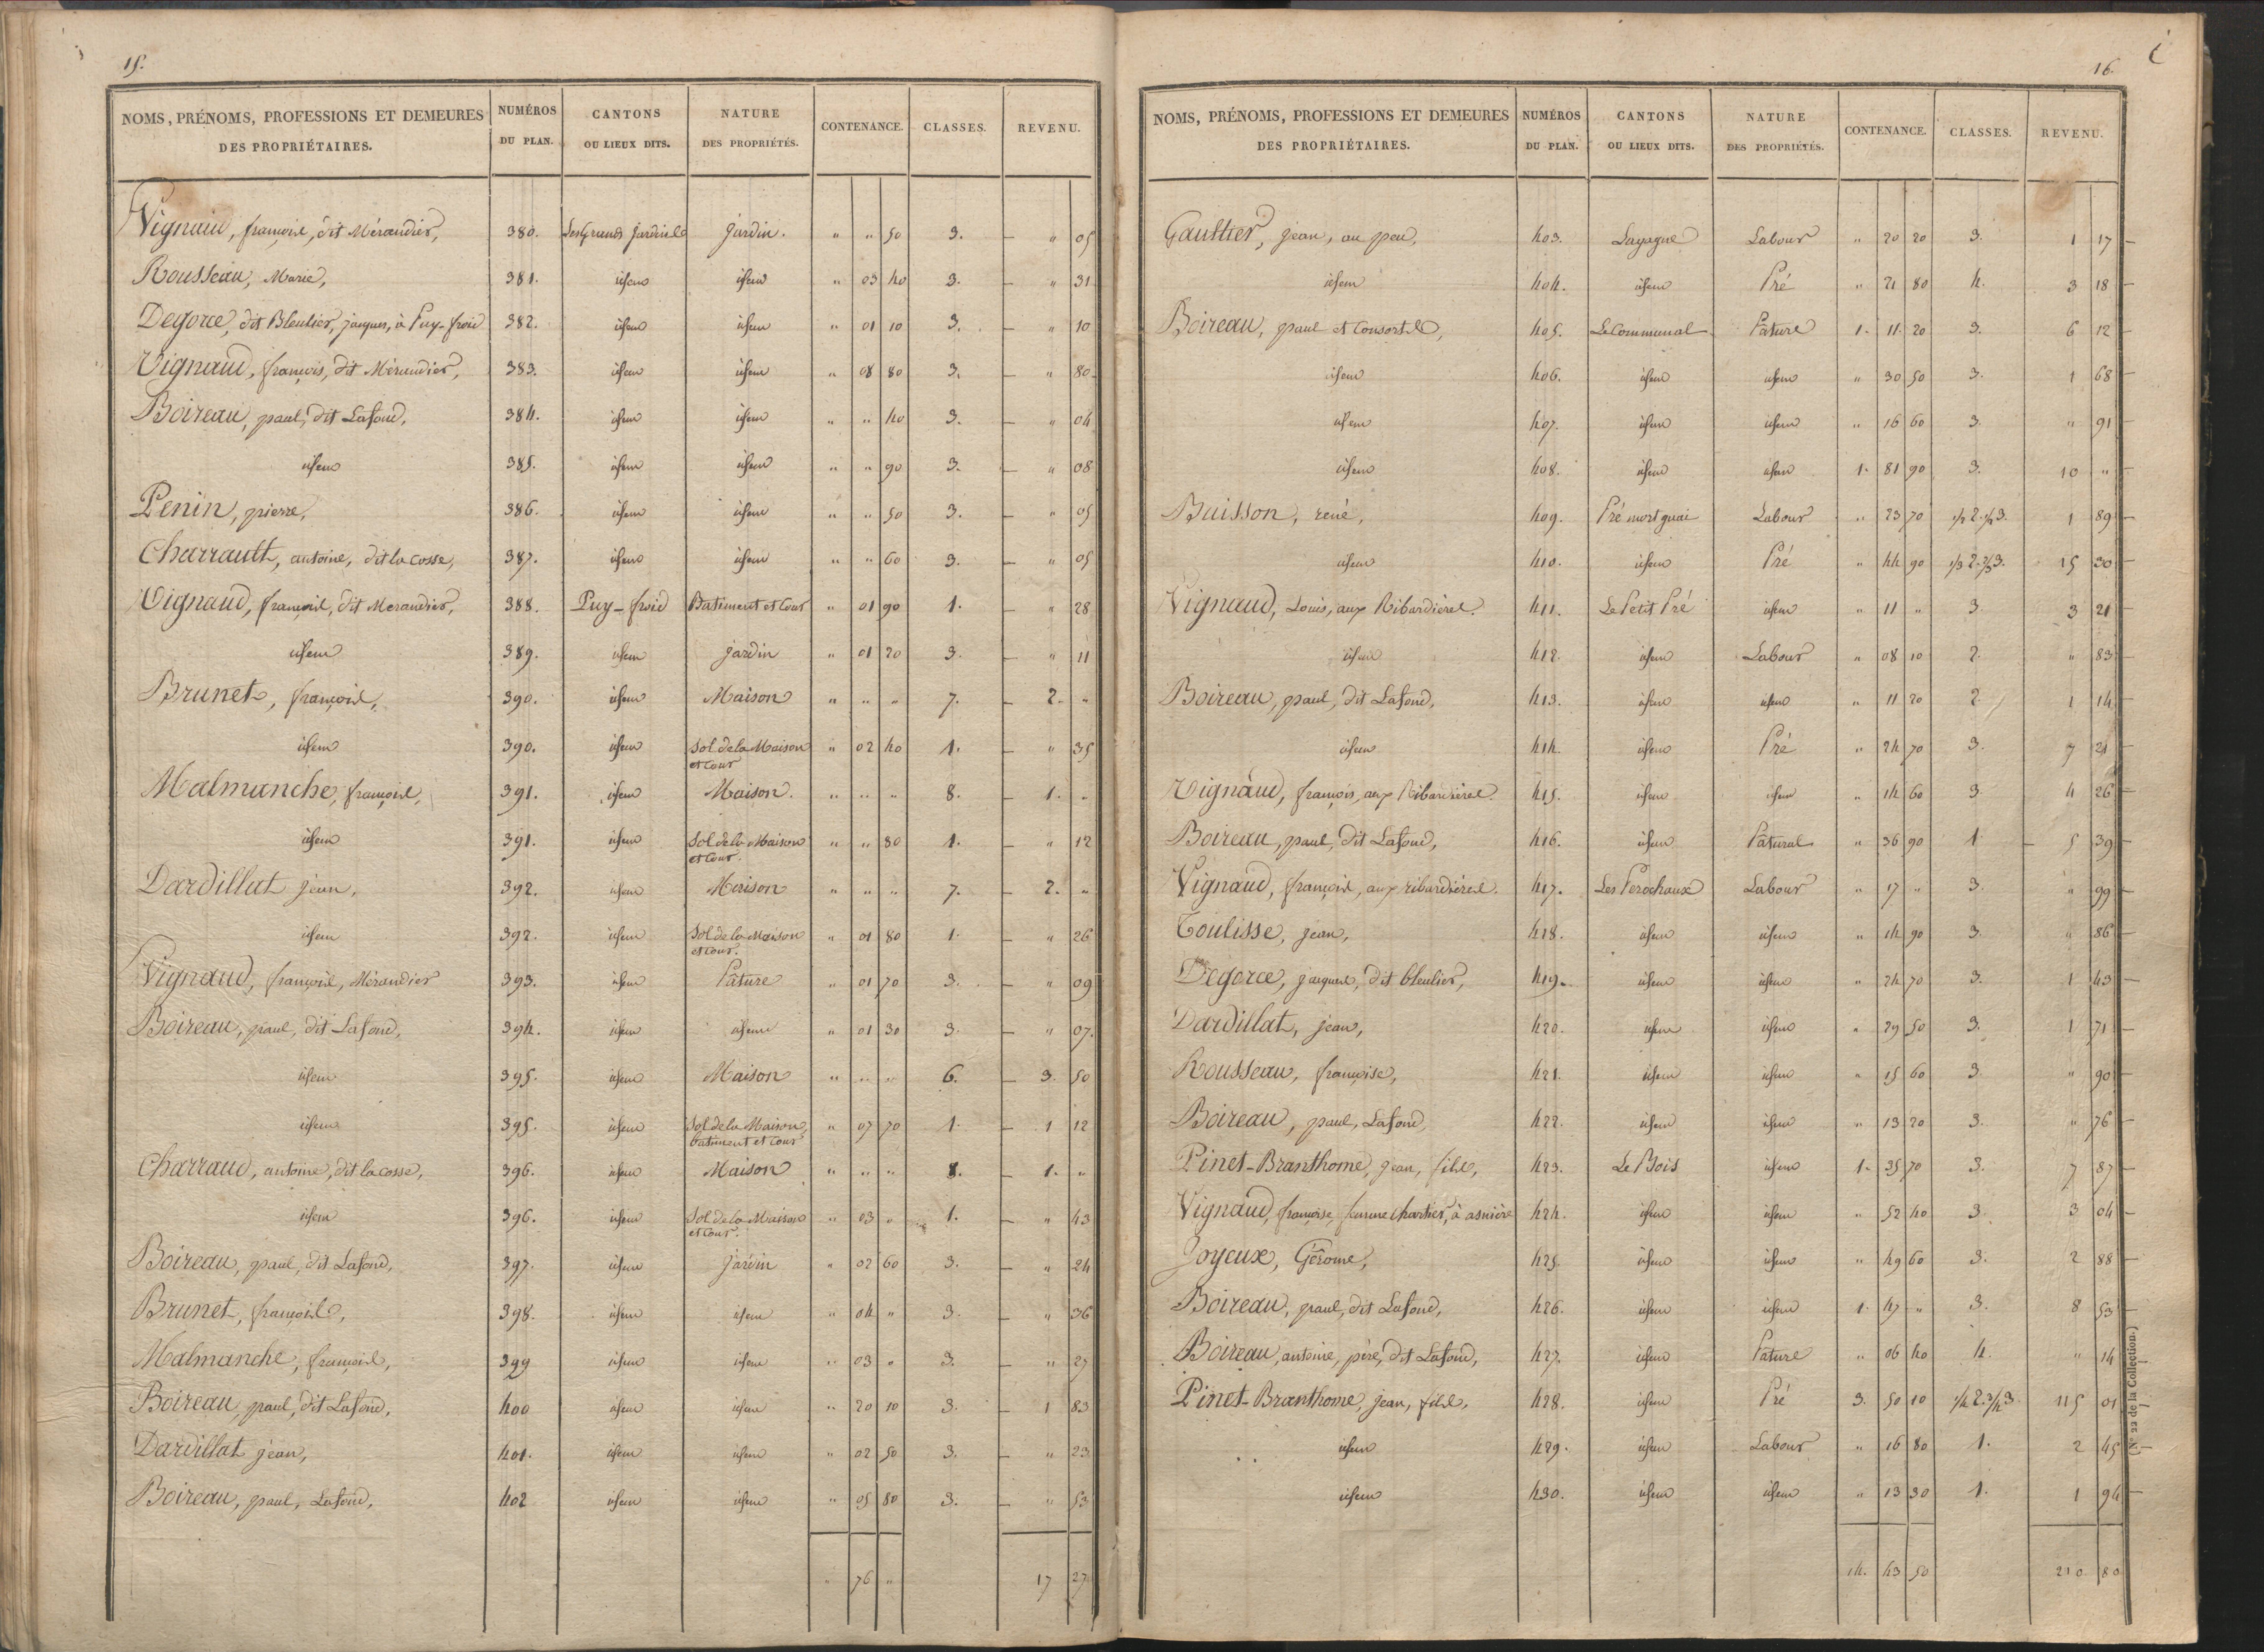 15.
NOMS, PRÉNOMS, PROFESSIONS ET DEMEURES DES PROPRIÉTAIRES. NUMÉROS DU PLAN. CANTONS OU LIEUX DITS. NATURE DES PROPRIÉTÉS. CONTENANCE. CLASSES. REVENU.
Vignaud, françois, dit Mérandier, 380. Les Grands Jardins Jardin. " " 50 3. — " 05
Rousseau, Marie, 381. idem idem " 03 40 3. — " 31
Degorce, dit Bleulier, jacques, à Puy-froid 382. idem idem " 01 10 3. — " 10
Vignaud, françois, dit Mérandier, 383. idem idem " 08 80 3. — " 80
Boireau, paul, dit Lafond, 384. idem idem " " 40 3. — " 04
idem 385. idem idem " " 90 3. — " 08
Penin, pierre, 386. idem idem " " 50 3. — " 05
Charrault, antoine, dit la cosse, 387. idem idem " " 60 3. — " 05
Vignaud, françois, dit Merandier, 388. Puy-froid Batiment et Cour " 01 90 1. — " 28
idem 389. idem jardin " 01 20 3. — " 11
Brunet, françois, 390. idem Maison " " " 7. — 2. "
idem 390. idem Sol de la Maison et Cour " 02 40 1. — " 35
Malmanche, françois, 391. idem Maison. " " " 8. — 1. "
idem 391. idem Sol de la Maison et Cour. " " 80 1. — " 12
Dardillat jean, 392. idem Maison " " " 7. — 2. "
idem 392. idem Sol de la Maison et Cour. " 01 80 1. — " 26
Vignaud, françois, Mérandier 393. idem Pâture " 01 70 3. — " 09
Boireau, paul, dit Lafond, 394. idem idem " 01 30 3. — " 07.
idem 395. idem Maison " " " 6. — 3. 50
idem 395. idem Sol de la Maison, batiment et Cour " 07 70 1. — 1 12
Charraud, antoine, dit la cosse, 396. idem Maison " " " 8. — 1. "
idem 396. idem Sol de la Maison et Cour. " 03 " 1. — " 43
Boireau, paul, dit Lafond, 397. idem jardin " 02 60 3. — " 24
Brunet, françois, 398. idem idem " 04 " 3. — " 36
Malmanche, françois, 399 idem idem " 03 " 3. — " 27
Boireau, paul, dit Lafond, 400 idem idem " 20 10 3. — 1 83
Dardillat jean, 401. idem idem " 02 50 3. — " 23
Boireau, paul, Lafond, 402 idem idem " 05 80 3. — " 53
" 76 " 17 27
16.
NOMS, PRÉNOMS, PROFESSIONS ET DEMEURES DES PROPRIÉTAIRES. NUMÉROS DU PLAN. CANTONS OU LIEUX DITS. NATURE DES PROPRIÉTÉS. CONTENANCE. CLASSES. REVENU.
Gaultier, jean, au peu, 403. Layagne Labour " 20 20 3. 1 17 —
idem 404. idem Pré " 21 80 4. 3 18 —
Boireau, paul et Consorts, 405. Le Communal Pâture 1. 11. 20 3. 6 12 —
idem 406. idem idem " 30 50 3. 1 68 —
idem 407. idem idem " 16 60 3. " 91 —
idem 408. idem idem 1. 81 90 3. 10 " —
Buisson, rené, 409. Pré mortguai Labour " 23 70 1/2 2. 1/2 3. 1 89 —
idem 410. idem Pré " 44 90 1/3 2. 2/3 3. 15 30 —
Vignaud, Louis, aux Ribardières. 411. Le Petit Pré idem " 11 " 3 3 21 —
idem 412. idem Labour " 08 10 2. " 83 —
Boireau, paul, dit Lafond, 413. idem idem " 11 20 2. 1 14 —
idem 414. idem Pré " 24 70 3. 7 21 —
Vignaud, françois, aux Ribardières. 415. idem idem " 14 60 3 4 26 —
Boireau, paul, dit Lafond, 416. idem Pâtural " 36 90 1 — 5 39 —
Vignaud, françois, aux ribardières. 417. Les Perochaux Labour " 17 " 3. " 99 —
Toulisse, jean, 418. idem idem " 14 90 3. " 86 —
Degorce, jacques, dit bleulier, 419. idem idem " 24 70 3. 1 43 —
Dardillat, jean, 420. idem idem " 29 50 3. 1 71 —
Rousseau, françoise, 421. idem idem " 15 60 3. " 90 —
Boireau, paul, Lafond, 422. idem idem " 13 20 3. " 76 —
Pinet-Branthome, jean, fils, 423. Le Bois idem 1. 35 70 3. 7 87 —
Vignaud, françoise, femme Charties, à asnière 424. idem idem " 52 40 3. 3 04 —
Joyeux, Gérome, 425. idem idem " 49 60 3. 2 88 —
Boireau, paul, dit Lafond, 426. idem idem 1. 47 " 3. 8 53 —
Boireau, antoine, père, dit Lafond, 427. idem Pature " 06 40 4. " 14 —
Pinet-Branthome, jean, fils, 428. idem Pré 3. 50 10 1/4 2. 3/4 3. 115 01 —
idem 429. idem Labour " 16 80 1. 2 45 —
idem 430. idem idem " 13 30 1. 1 94 —
14. 43 50 210 80
(N° 22 de la Collection.)